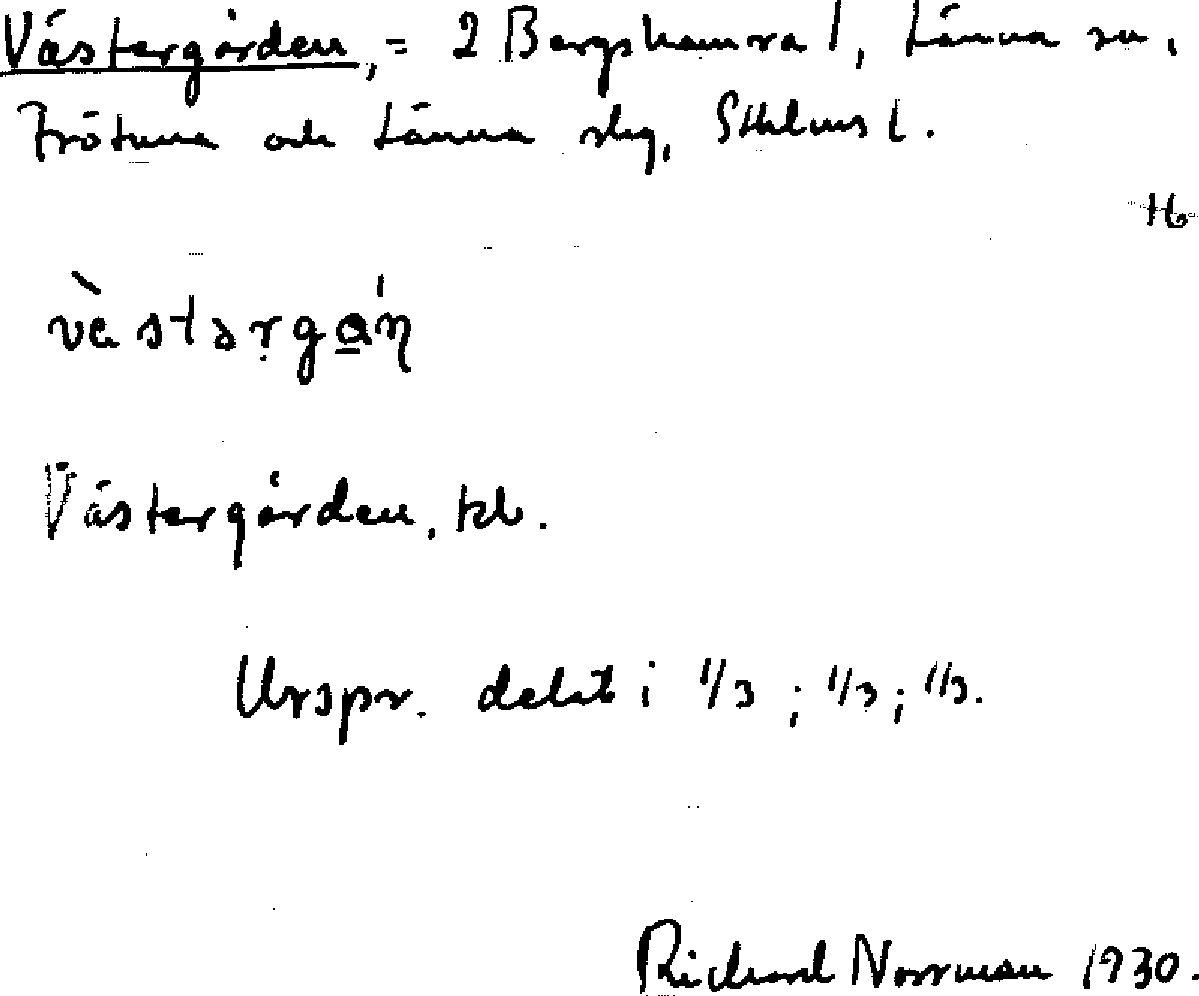 Västergården, = 2 Bergshamra 1, Länna sn,
Frötuna och Länna slg, Sthlms l.
16
vä̀stərgɑ̱́ŋ
Västergården, tkb.
Urspr. delat i 1/3 ; 1/3 ; 1/3.
Richard Norrman 1930.